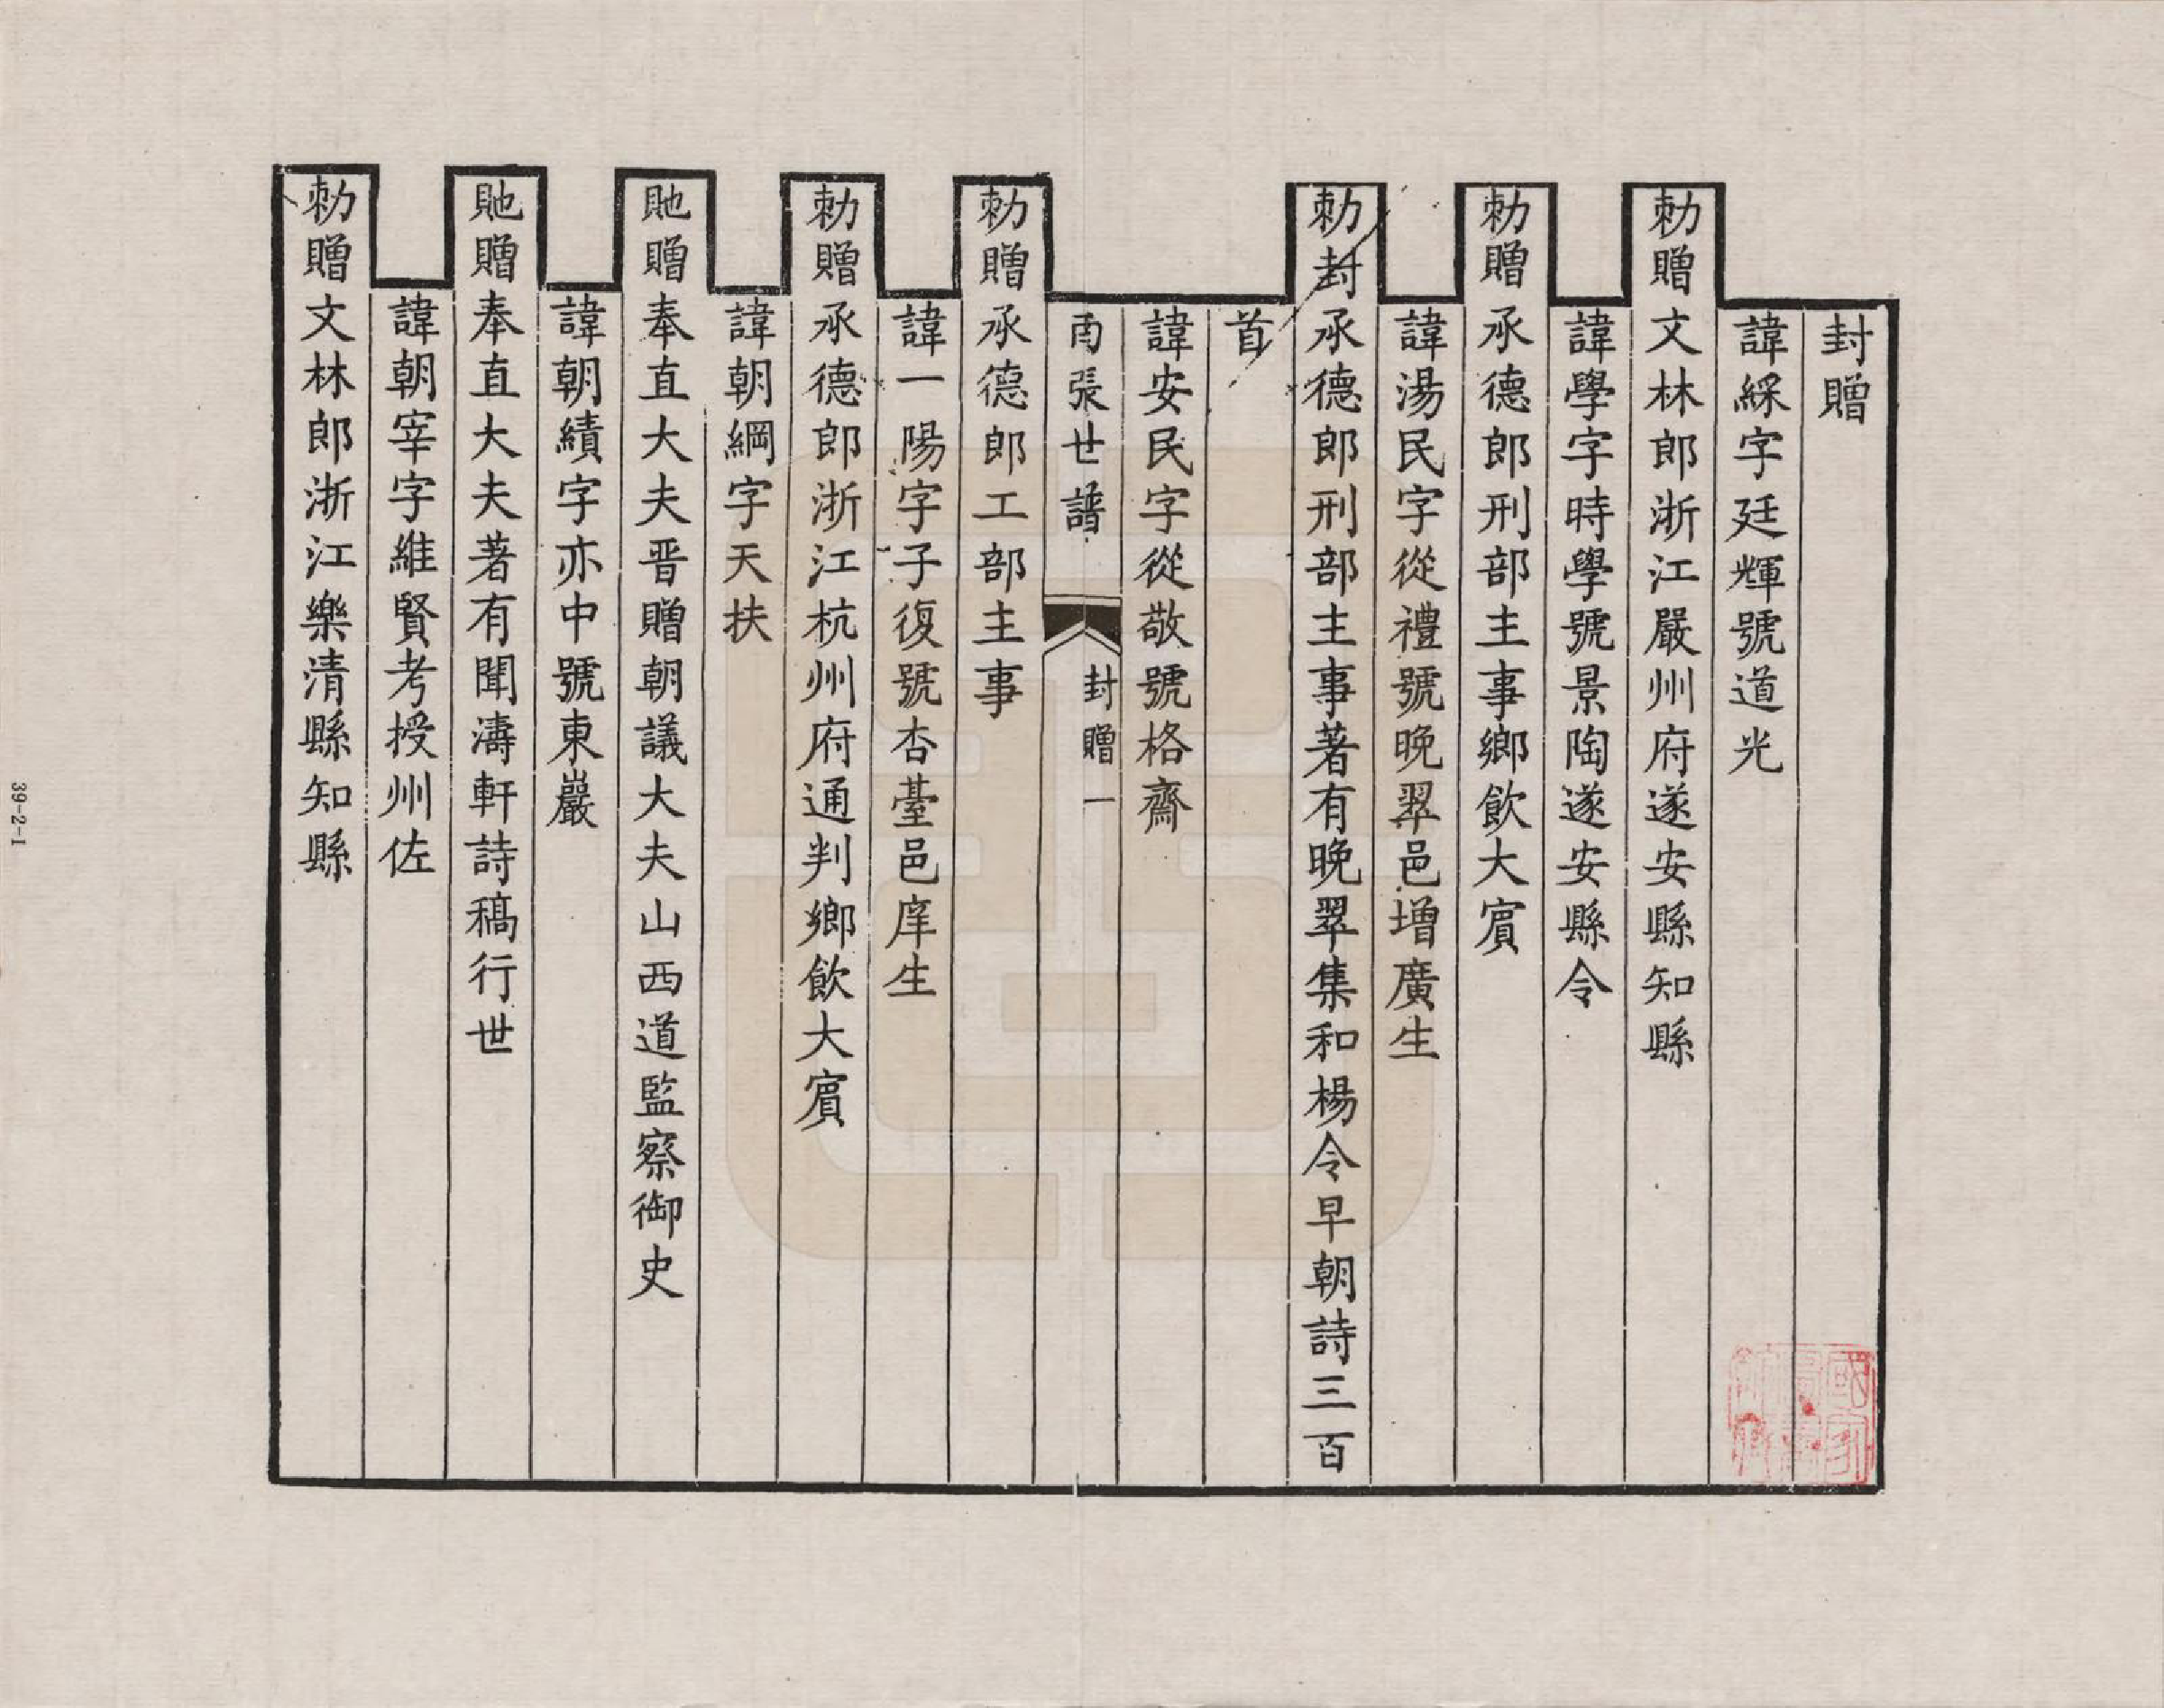 封贈
諱綵字廷輝號道光
勅贈文林郎浙江嚴州府遂安縣知縣
諱學字時學號景陶遂安縣令
勅贈承德郎刑部主事鄉飲大賔
諱湯民字從禮號晚翠邑增廣生
勅封承德郎刑部主事著有晚翠集和楊令早朝詩三百
首
諱安民字從敬號格齋
甬張世譜
封贈 一
勅贈承德郎工部主事
諱一陽字子復號杏臺邑庠生
勅贈承德郎浙江杭州府通判鄉飲大賔
諱朝綱字天扶
貤贈奉直大夫晋贈朝議大夫山西道監察御史
諱朝績字亦中號東巖
貤贈奉直大夫著有聞濤軒詩稿行世
諱朝宰字維賢考授州佐
勅贈文林郎浙江樂清縣知縣
39-2-1